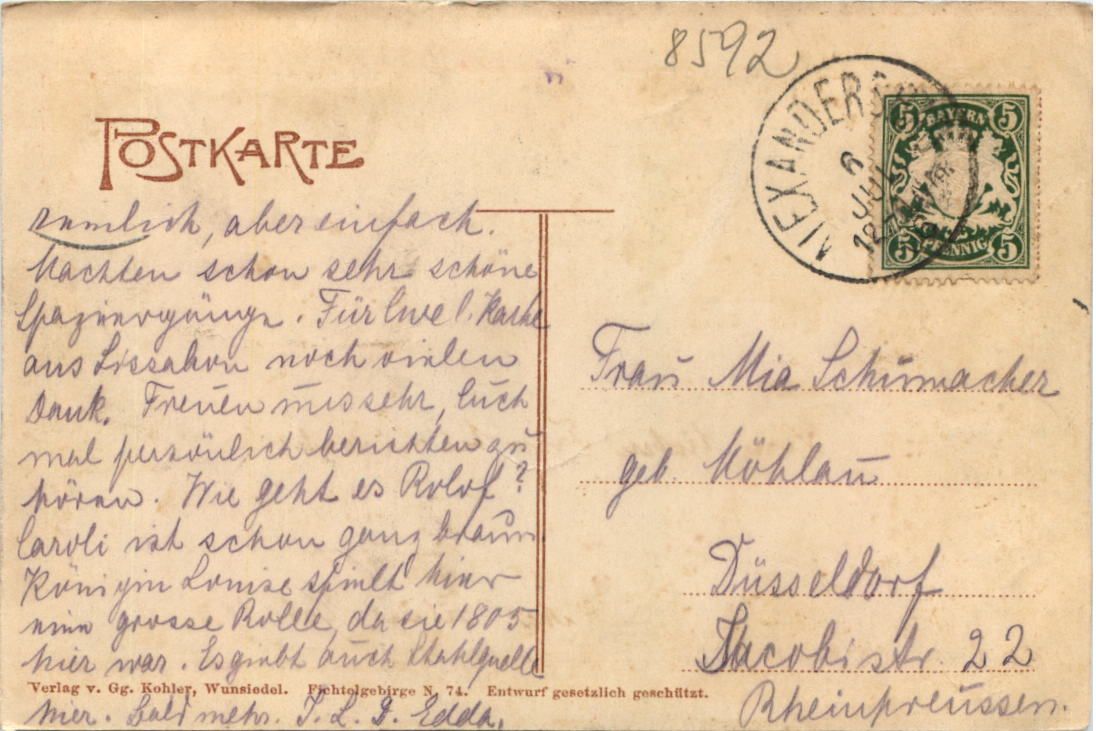 8592
POSTKARTE
ALEXANDERS
6
JUL
BAYERN
5 5
5 5
PFENNIG
ziemlich, aber einfach.
Machten schon sehr schöne
Spaziergänge. Für Eure l. Karte
aus Lissabon noch vielen
Dank. Freuen uns sehr, Euch
mal persönlich berichten zu
hören. Wie geht es Rolof?
Caroli ist schon ganz braun.
Königin Louise spielt hier
eine grosse Rolle, da sie 1805
hier war. Es giebt auch Stahlquelle
hier. Bald mehr. I. L. D. Edda.
Frau Mia Schumacher
geb. Möhlau
Düsseldorf
Jacobistr. 22
Rheinpreussen.
Verlag v. Gg. Kohler, Wunsiedel. Fichtelgebirge N. 74. Entwurf gesetzlich geschützt.